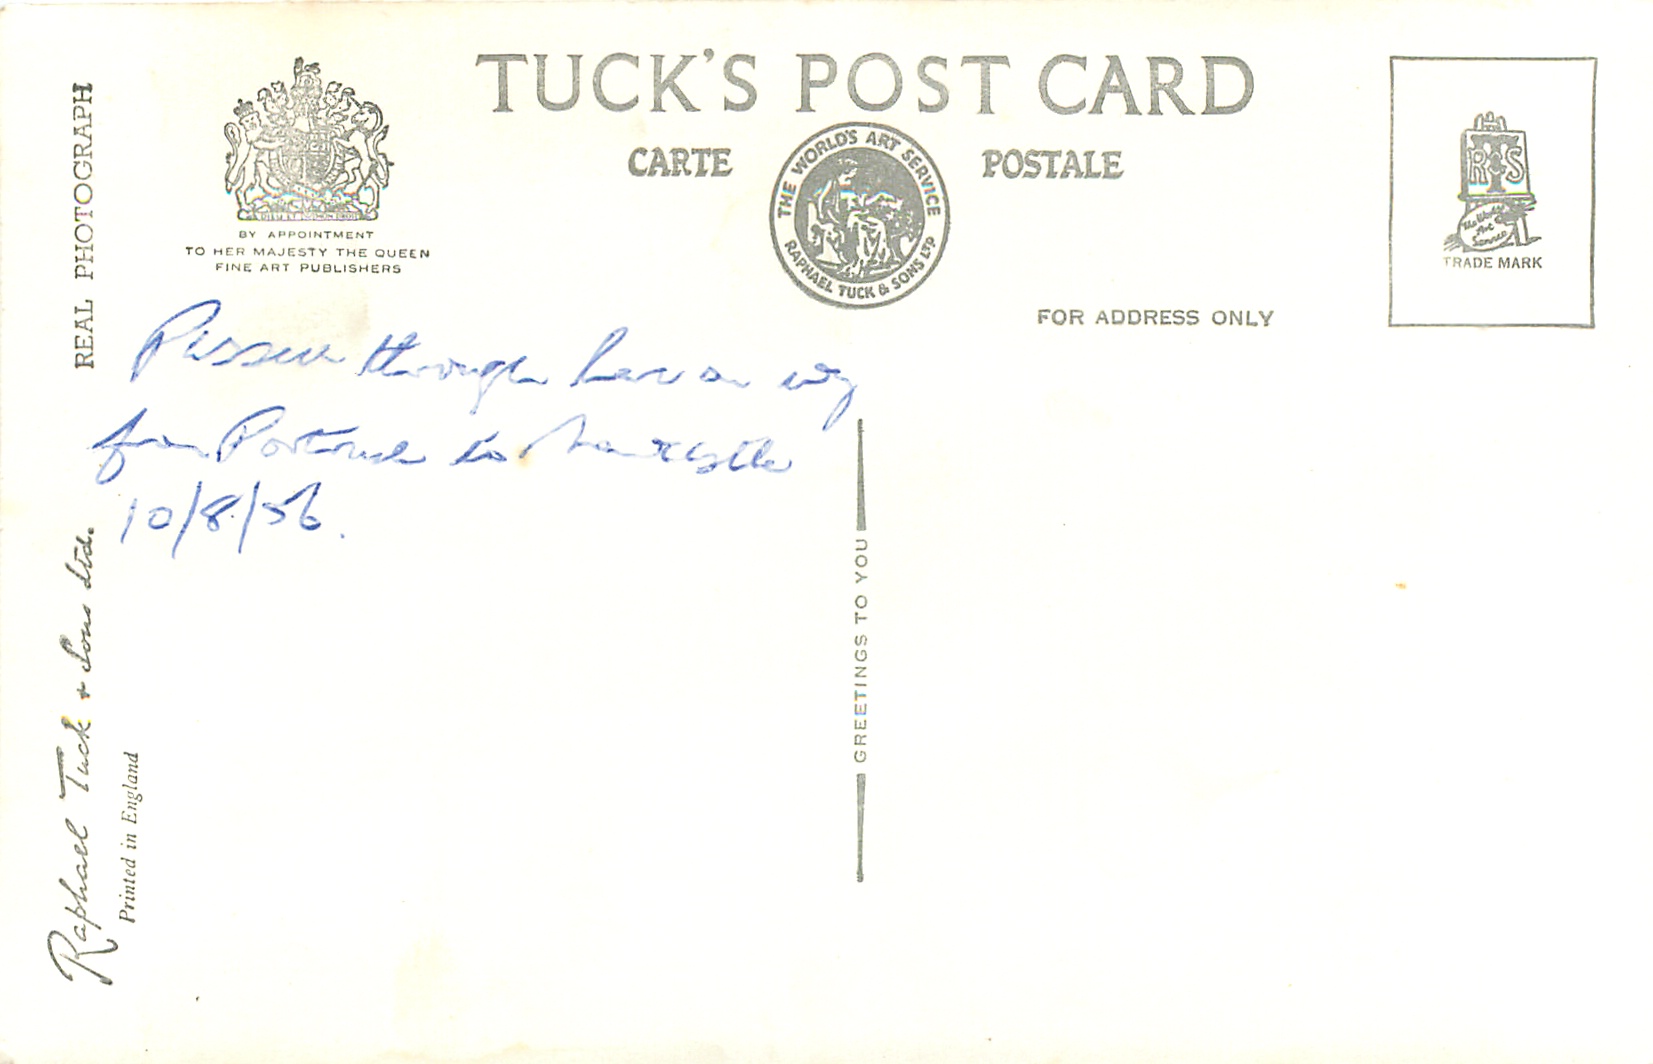 TUCK'S POST CARD
CARTE POSTALE
REAL PHOTOGRAPH
DIEU ET MON DROIT
BY APPOINTMENT
TO HER MAJESTY THE QUEEN
FINE ART PUBLISHERS
THE WORLD'S ART SERVICE
RAPHAEL TUCK & SONS LTD
RTS
The World's
Art
Service
TRADE MARK
FOR ADDRESS ONLY
through here on way
from Portrush to Newcastle
10/8/56.
GREETINGS TO YOU
Raphael Tuck & Sons Ltd.
Printed in England